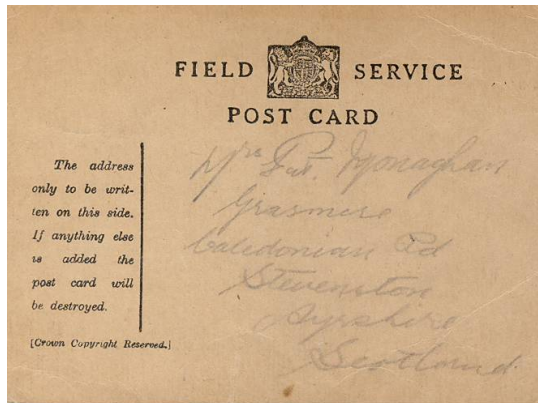 FIELD SERVICE
POST CARD
The address
only to be writ-
ten on this side.
If anything else
is added the
post card will
be destroyed.
[Crown Copyright Reserved.]
Mrs Pat. Monaghan
Grasmere
Caledonian Rd
Stevenston
Ayrshire
Scotland